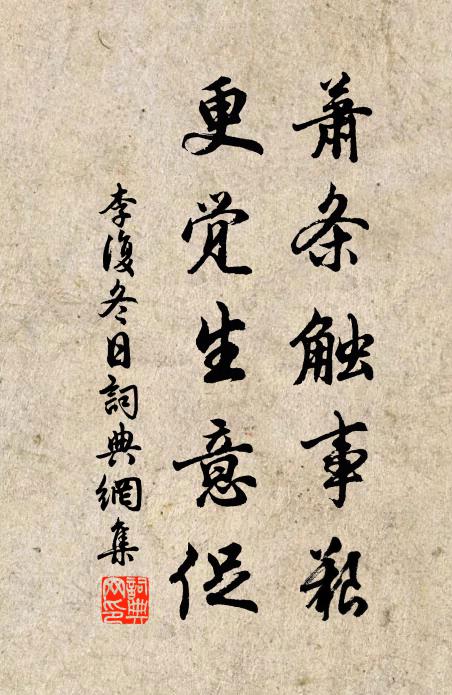 蕭条触事艱
更觉生意促
李復冬日詞典網集
詞典网印